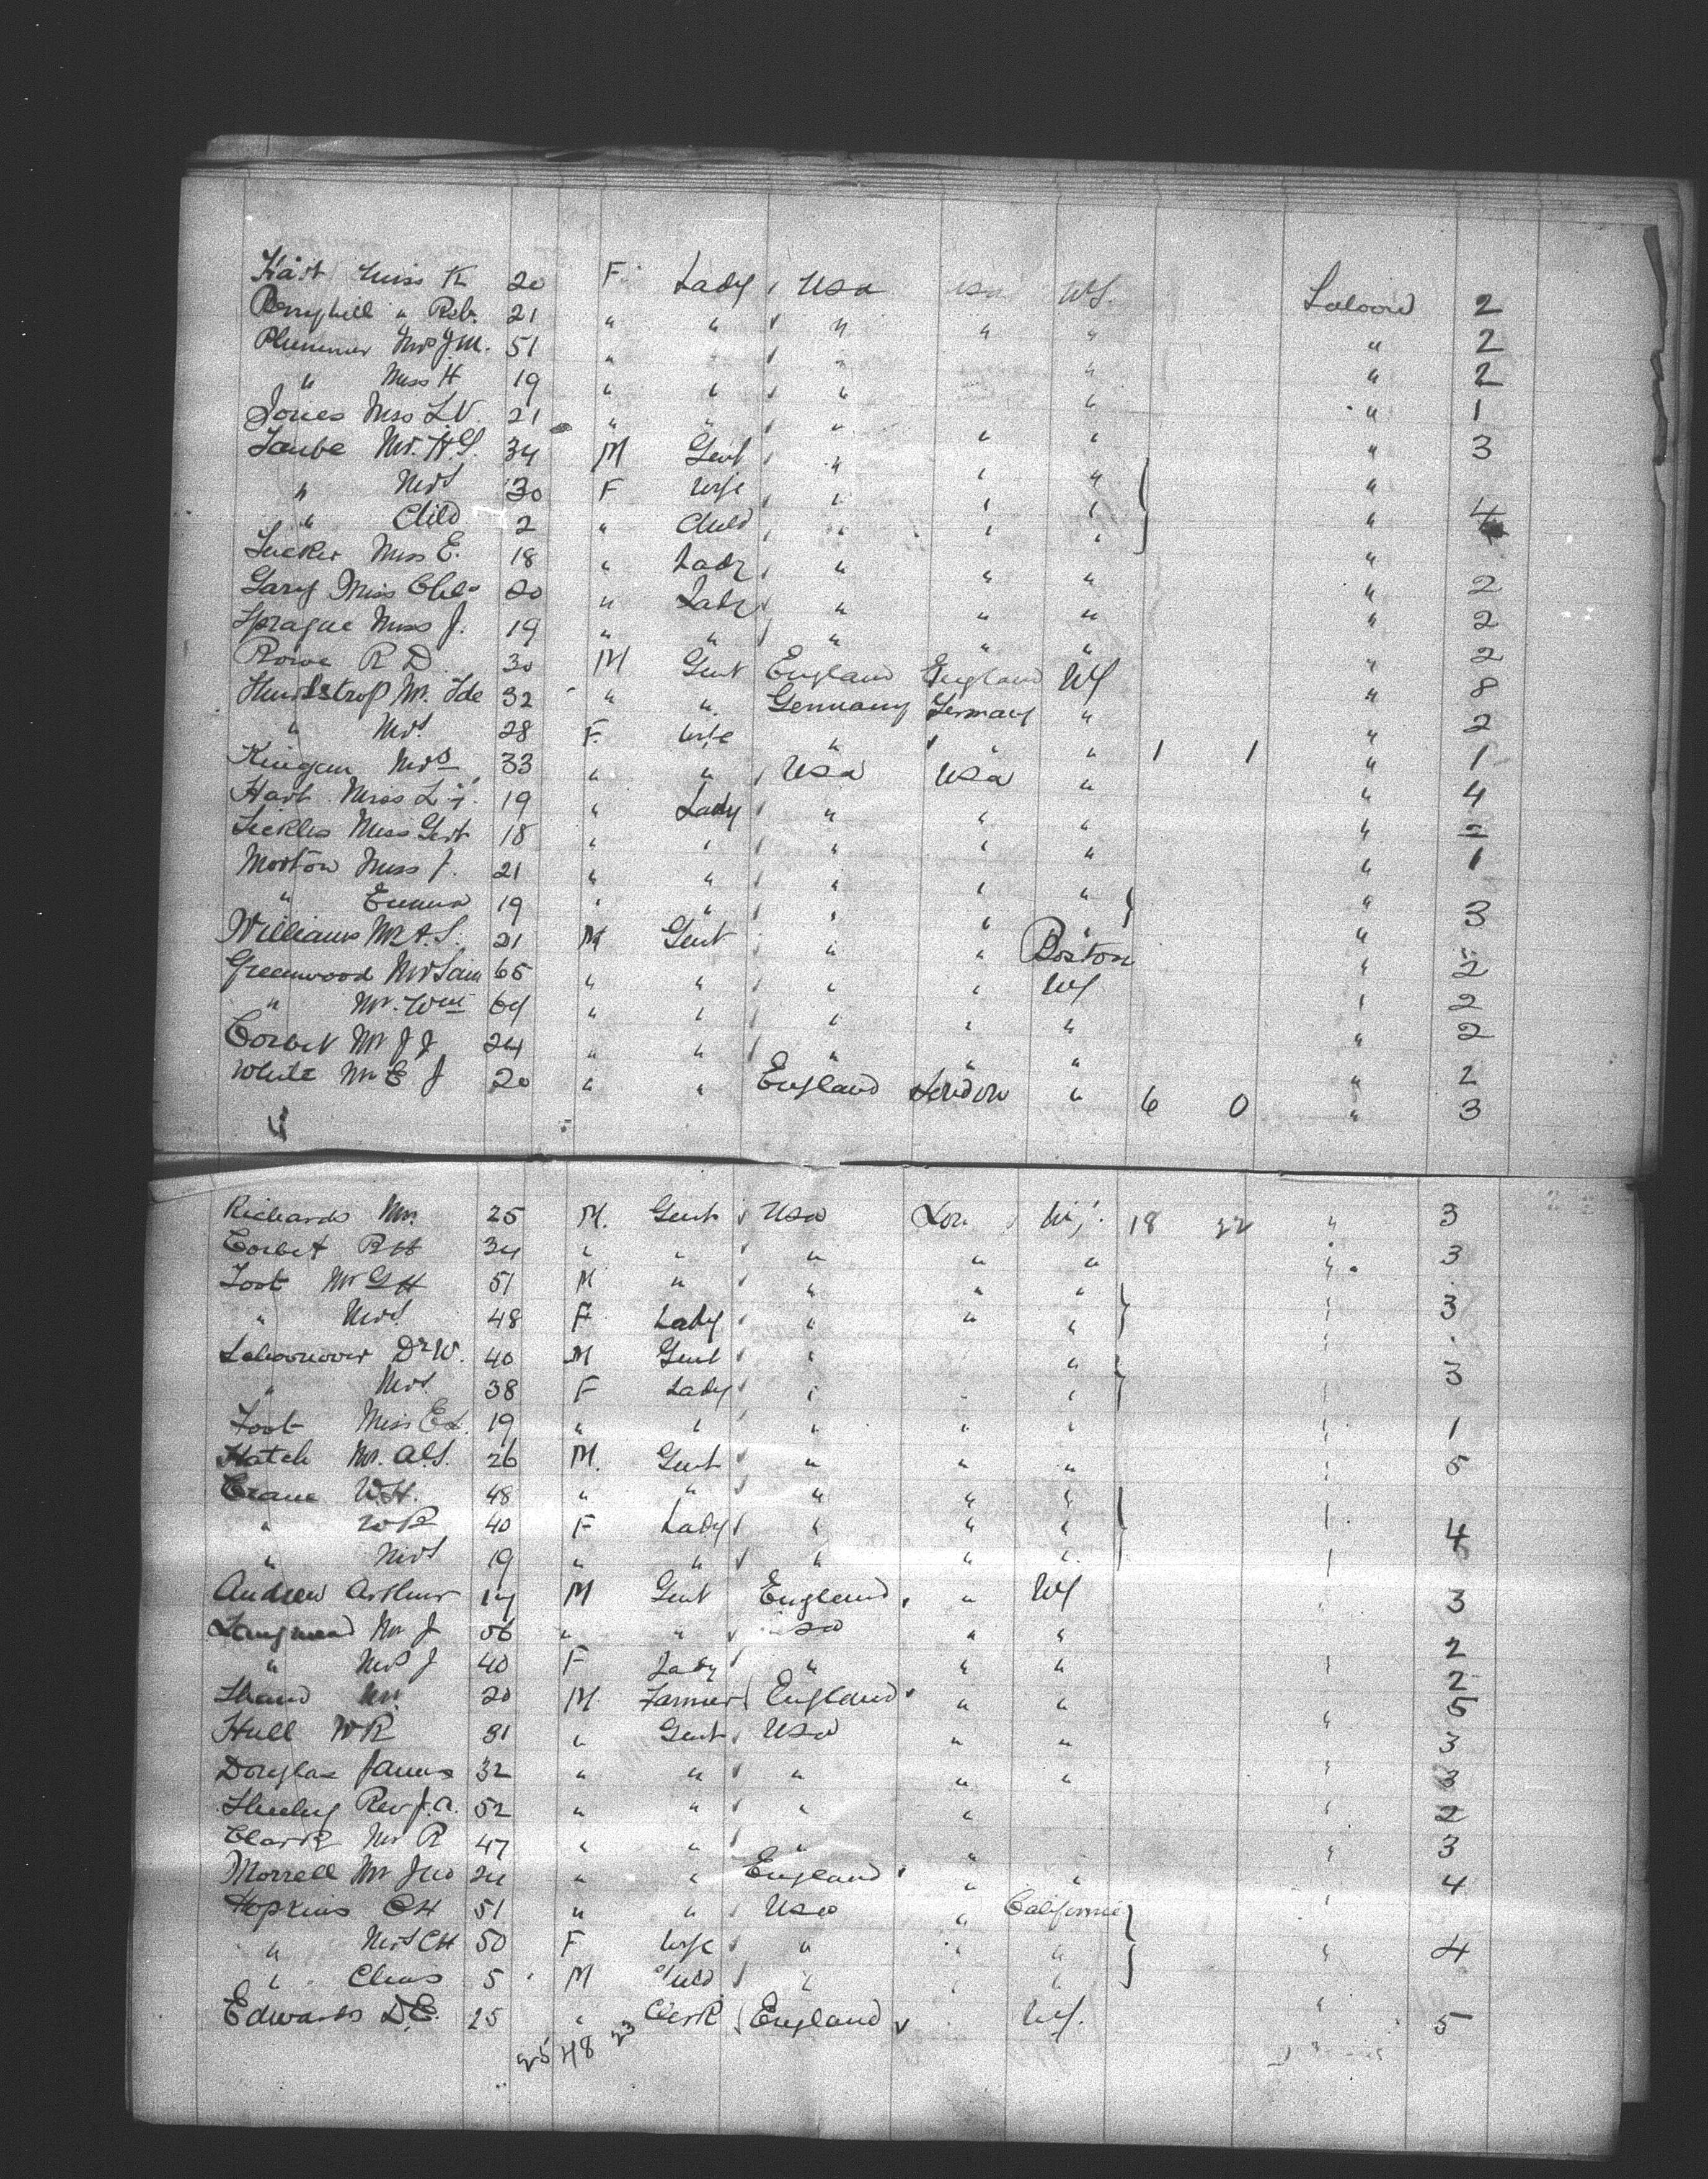 Hart Miss K 20 F. Lady Usa Usa NY. Saloon 2
Berryhill " Reb. 21 " " " " " " 2
Plummer Mrs J.M. 51 " " " " 2
" Miss H 19 " " " " " 1
Jones Miss L.V. 21 " " " " " " 3
Taube Mr. H.G. 34 M Gent " " " "
" Mrs 30 F Wife " " " "
" Child 2 " Child " " " " 4
Tucker Miss E. 18 " Lady " " " " 2
Gary Miss 20 " Lady " " " " 2
Sprague Miss J. 19 " " " " " " 2
Rowe R D. 30 M Gent England England NY " 8
Mr. 32 " " Germany Germany " " 2
" Mrs 28 F. Wife " " " 1 1 " 1
Kingan Mrs 33 " " Usa Usa " " 4
Hart Miss L 19 " Lady " " " " 2
Sickles Miss Gert 18 " " " " " " 1
Morton Miss J. 21 " " " " " "
" Emma 19 " " " " " " 3
Williams Mr A.S. 21 M Gent " " Boston " 2
Greenwood Mr Sam 65 " " " " NY " 2
" Mr. Wm 64 " " " " " " 2
Corbet Mr J J 24 " " " " " " 2
White Mr E J 20 " " England London " 6 0 " 3
Richards Mr. 25 M. Gent Usa Lon NY. 18 22 " 3
Corbet R H 34 " " " " " " 3
Foot Mr G H 51 M " " " " "
" Mrs. 48 F Lady " " " " 3
Schoonover Dr W. 40 M Gent " " "
" Mrs. 38 F Lady " " " 3
Foot Miss E 19 " " " " " " 1
Hatch Mr. A.S. 26 M. Gent " " " " 5
Crane W.H. 48 " " " " " "
" W R 40 F Lady " " " " 4
" Mrs 19 " " " " " "
Andrew Arthur 14 M Gent England " NY " 3
Mr J 56 " " Usa " " 2
" Mrs J 40 F Lady " " " " 2
Mr. 20 M Farmer England " " 5
Hull W R 31 " Gent Usa " " " 3
Douglas James 32 " " " " " " 3
Rev J.A. 52 " " " " " 2
Clark Mr R 47 " " " " " 3
Morrell Mr Jno 24 " " England " " 4
Hopkins C H 51 " " Usa " California "
" Mrs C H 50 F Wife " " " " 4
" Chas 5 M Child " " "
Edwards D.E. 25 " Clerk England NY. " 5
25 48 23